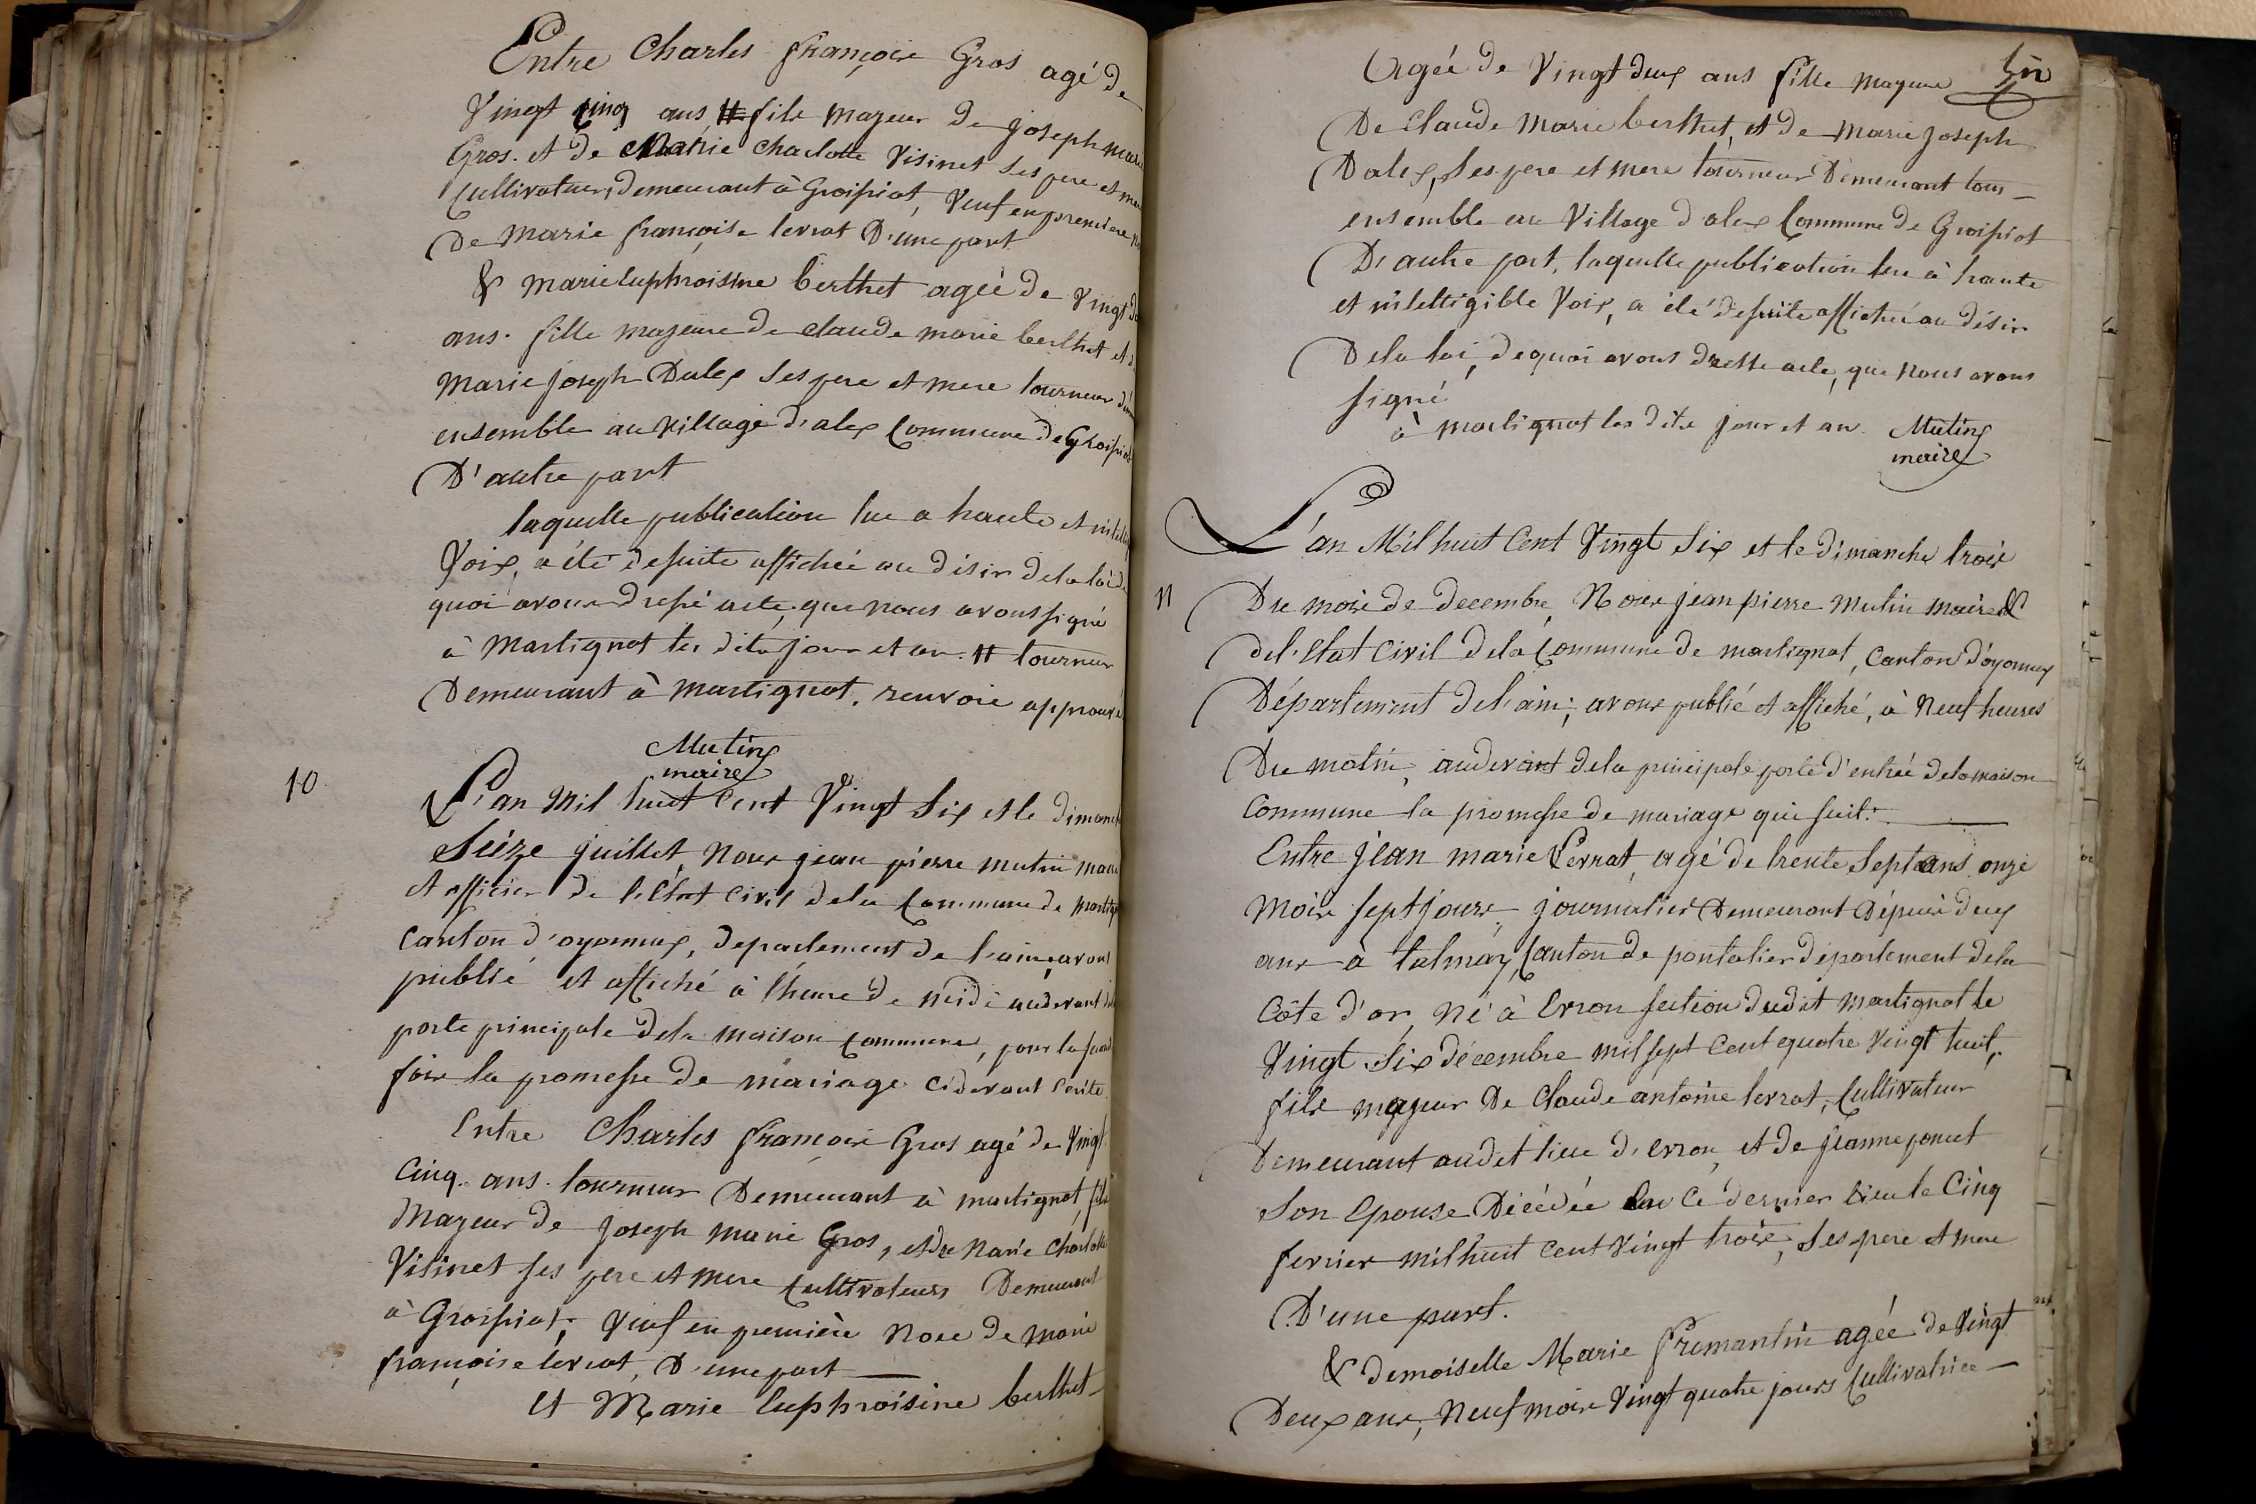 Entre Charles françois Gros agé de
Vingt Cinq ans, # fils majeur de joseph marie
Gros. et de Marie Charlotte Visinet ses pere et mere
Cultivateurs, demeurant à Groissiat, Veuf en premiere
De Marie françoise levrat D'une part
& marie Euphroisine berthet ageé de Vingt
ans. fille majeure de claude marie berthet et
Marie joseph Dalex ses pere et mere tourneur
ensemble au Village d'alex Commune de Groissiat
D'autre part
laquelle publication lue a haute et
Voix, a été desuite affichée au désir dela loi de
quoi avons dressé acte, que nous avons signé
à Martignat les dits jour et an. # tourneur
Demeurant à Martignat. renvoie approuvé
Mutin
maire
10
L'an Mil huit Cent Vingt Six et le dimanche
Seize juillet, Nous jean pierre mutin maire
et officier de l'état Civil dela Commune de
Canton d'oyonnax, departement de l'ain, avons
publié et affiché à l'heure de midi audevant
porte principale dela maison Commune, pour la
fois la promesse de mariage cidevant écrite
Entre Charles françois Gros agé de Vingt
Cinq. ans. tourneur Demeurant à martignat, fils
Majeur de joseph marie Gros, et de Marie Charlotte
Visinet ses pere et mere Cultivateurs Demeurant
à Groissiat; Veuf en première Noce de Marie
françoise levrat, D'une part
Et Marie Euphroisine berthet
Ageé de Vingt deux ans fille mayeure
De Claude Marie berthet, et de Marie joseph
Dalex, ses pere et mere tourneur Demeurant tous
ensemble au Village d'alex Commune de Groissiat
D'autre part, laquelle publication lue à haute
et intelligible Voix, a été desuite affichée au désir
Dela loi, de quoi avons dressé acte, que Nous avons
signé
à Martignat les dits jour et an. Mutin
maire
11
L'an Mil huit Cent Vingt Six et le dimanche trois
Du mois de decembre, Nous jean pierre Mutin maire &
del'Etat Civil dela Commune de martignat, Canton d'oyonnax
Département del'ain; avons publié et affiché, à Neuf heures
Du matin, audevant dela principale porte d'entrée dela maison
Commune la promesse de mariage qui suit:
Entre jean marie Levrat, agé de trente Sept ans onze
Mois sept jours, journalier Demeurant depuis deux
ans à talmay, Canton de pontalier département dela
Côte d'or, Né à Evron section dudit Martignat le
Vingt Six décembre mil sept Cent quatre Vingt huit,
fils majeur De Claude antoine levrat, Cultivateur
Demeurant audit lieu d'Evron, et de jeanne poncet
Son Epouse Décédée en Ce dernier lieu le Cinq
fevrier mil huit Cent Vingt trois, ses pere et mere
D'une part.
& demoiselle Marie fremantin agée de Vingt
Deux ans, Neuf mois Vingt quatre jours Cultivatrice